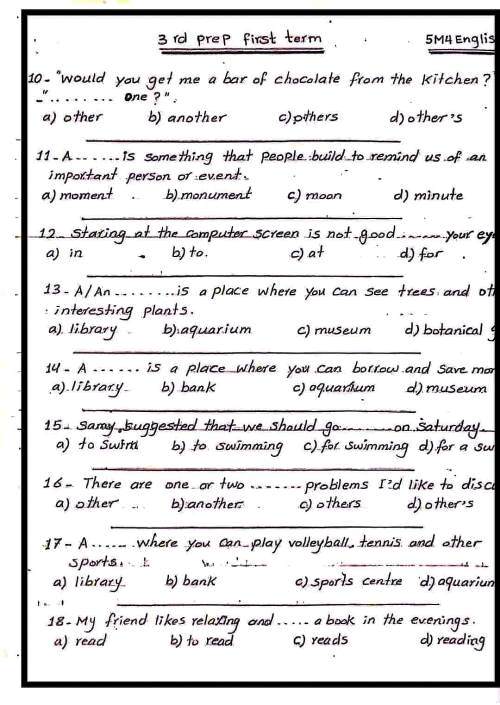 3 rd prep first term 5M4 Englis
10- "Would you get me a bar of chocolate from the kitchen?
-"........ one?".
a) other b) another c) others d) other's
11- A ...... is something that people build to remind us of an
important person or event.
a) moment b) monument c) moon d) minute
12- Staring at the computer screen is not good ....... your eye
a) in b) to. c) at d) for
13- A/An ........ is a place where you can see trees and oth
interesting plants.
a) library b) aquarium c) museum d) botanical g
14- A ...... is a place where you can borrow and save mon
a) library b) bank c) aquarium d) museum
15- Samy suggested that we should go ........ on Saturday.
a) to swim b) to swimming c) for swimming d) for a sw
16- There are one or two ....... problems I'd like to discu
a) other b) another c) others d) other's
17- A ...... where you can play volleyball, tennis and other
sports.
a) library b) bank c) sports centre d) aquarium
18- My friend likes relaxing and ..... a book in the evenings.
a) read b) to read c) reads d) reading